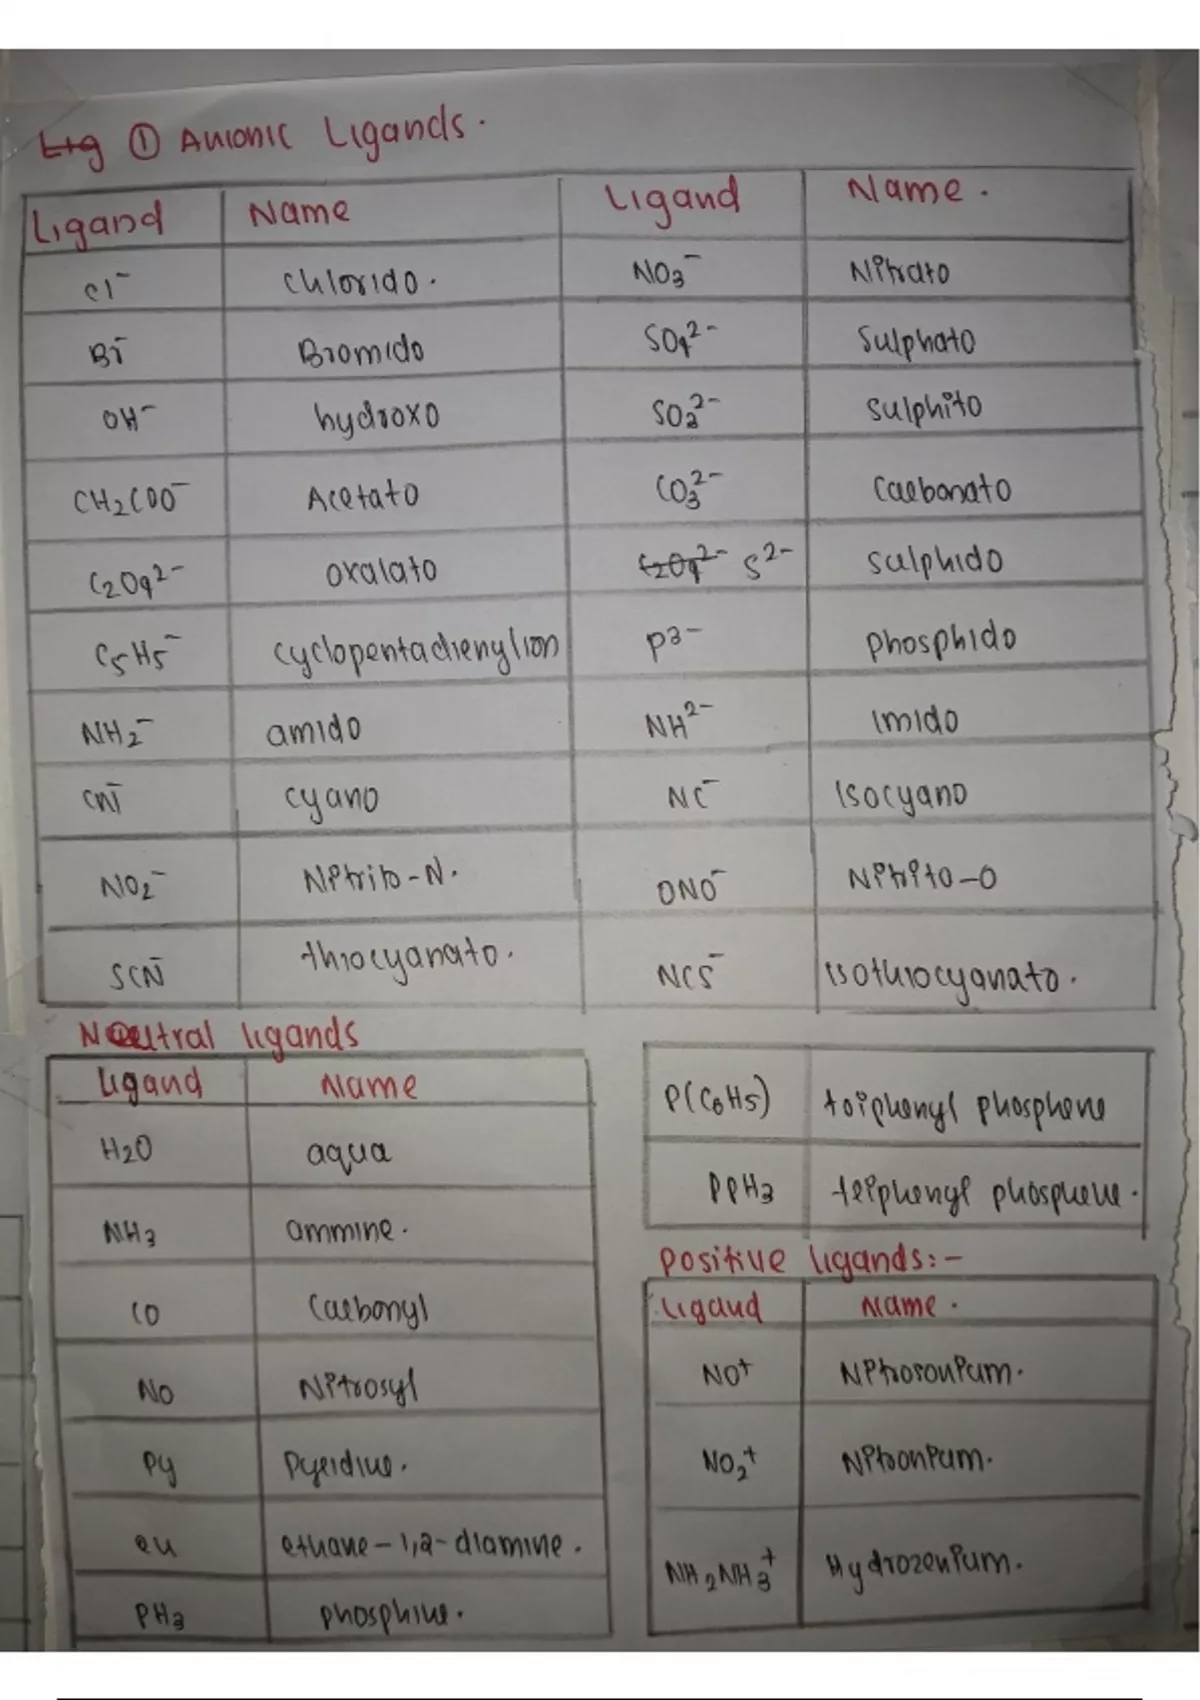 Lig ① Anionic Ligands.
Ligand Name Ligand Name.
Cl⁻ chlorido. NO₃⁻ Nitrato
Br⁻ Bromido SO₄²⁻ Sulphato
OH⁻ hydroxo SO₃²⁻ Sulphito
CH₂COO⁻ Acetato CO₃²⁻ Carbonato
C₂O₄²⁻ oxalato C₂O₄²⁻ S²⁻ Sulphido
C₅H₅⁻ cyclopentadienylion P³⁻ phosphido
NH₂⁻ amido NH²⁻ imido
CN⁻ cyano NC⁻ Isocyano
NO₂⁻ Nitrito-N. ONO⁻ Nitrito-O
SCN⁻ thiocyanato. NCS⁻ isothiocyanato.
Neutral ligands
Ligand Name
H₂O aqua
NH₃ ammine.
CO Carbonyl
NO Nitrosyl
Py Pyridine.
en ethane-1,2-diamine.
PH₃ phosphine.
P(C₆H₅) triphenyl phosphene
PPH₃ triphenyl phosphene.
Positive ligands:-
Ligand Name.
NO⁺ Nitrosonium.
NO₂⁺ Nitronium.
NH₂NH₃⁺ Hydrozenium.